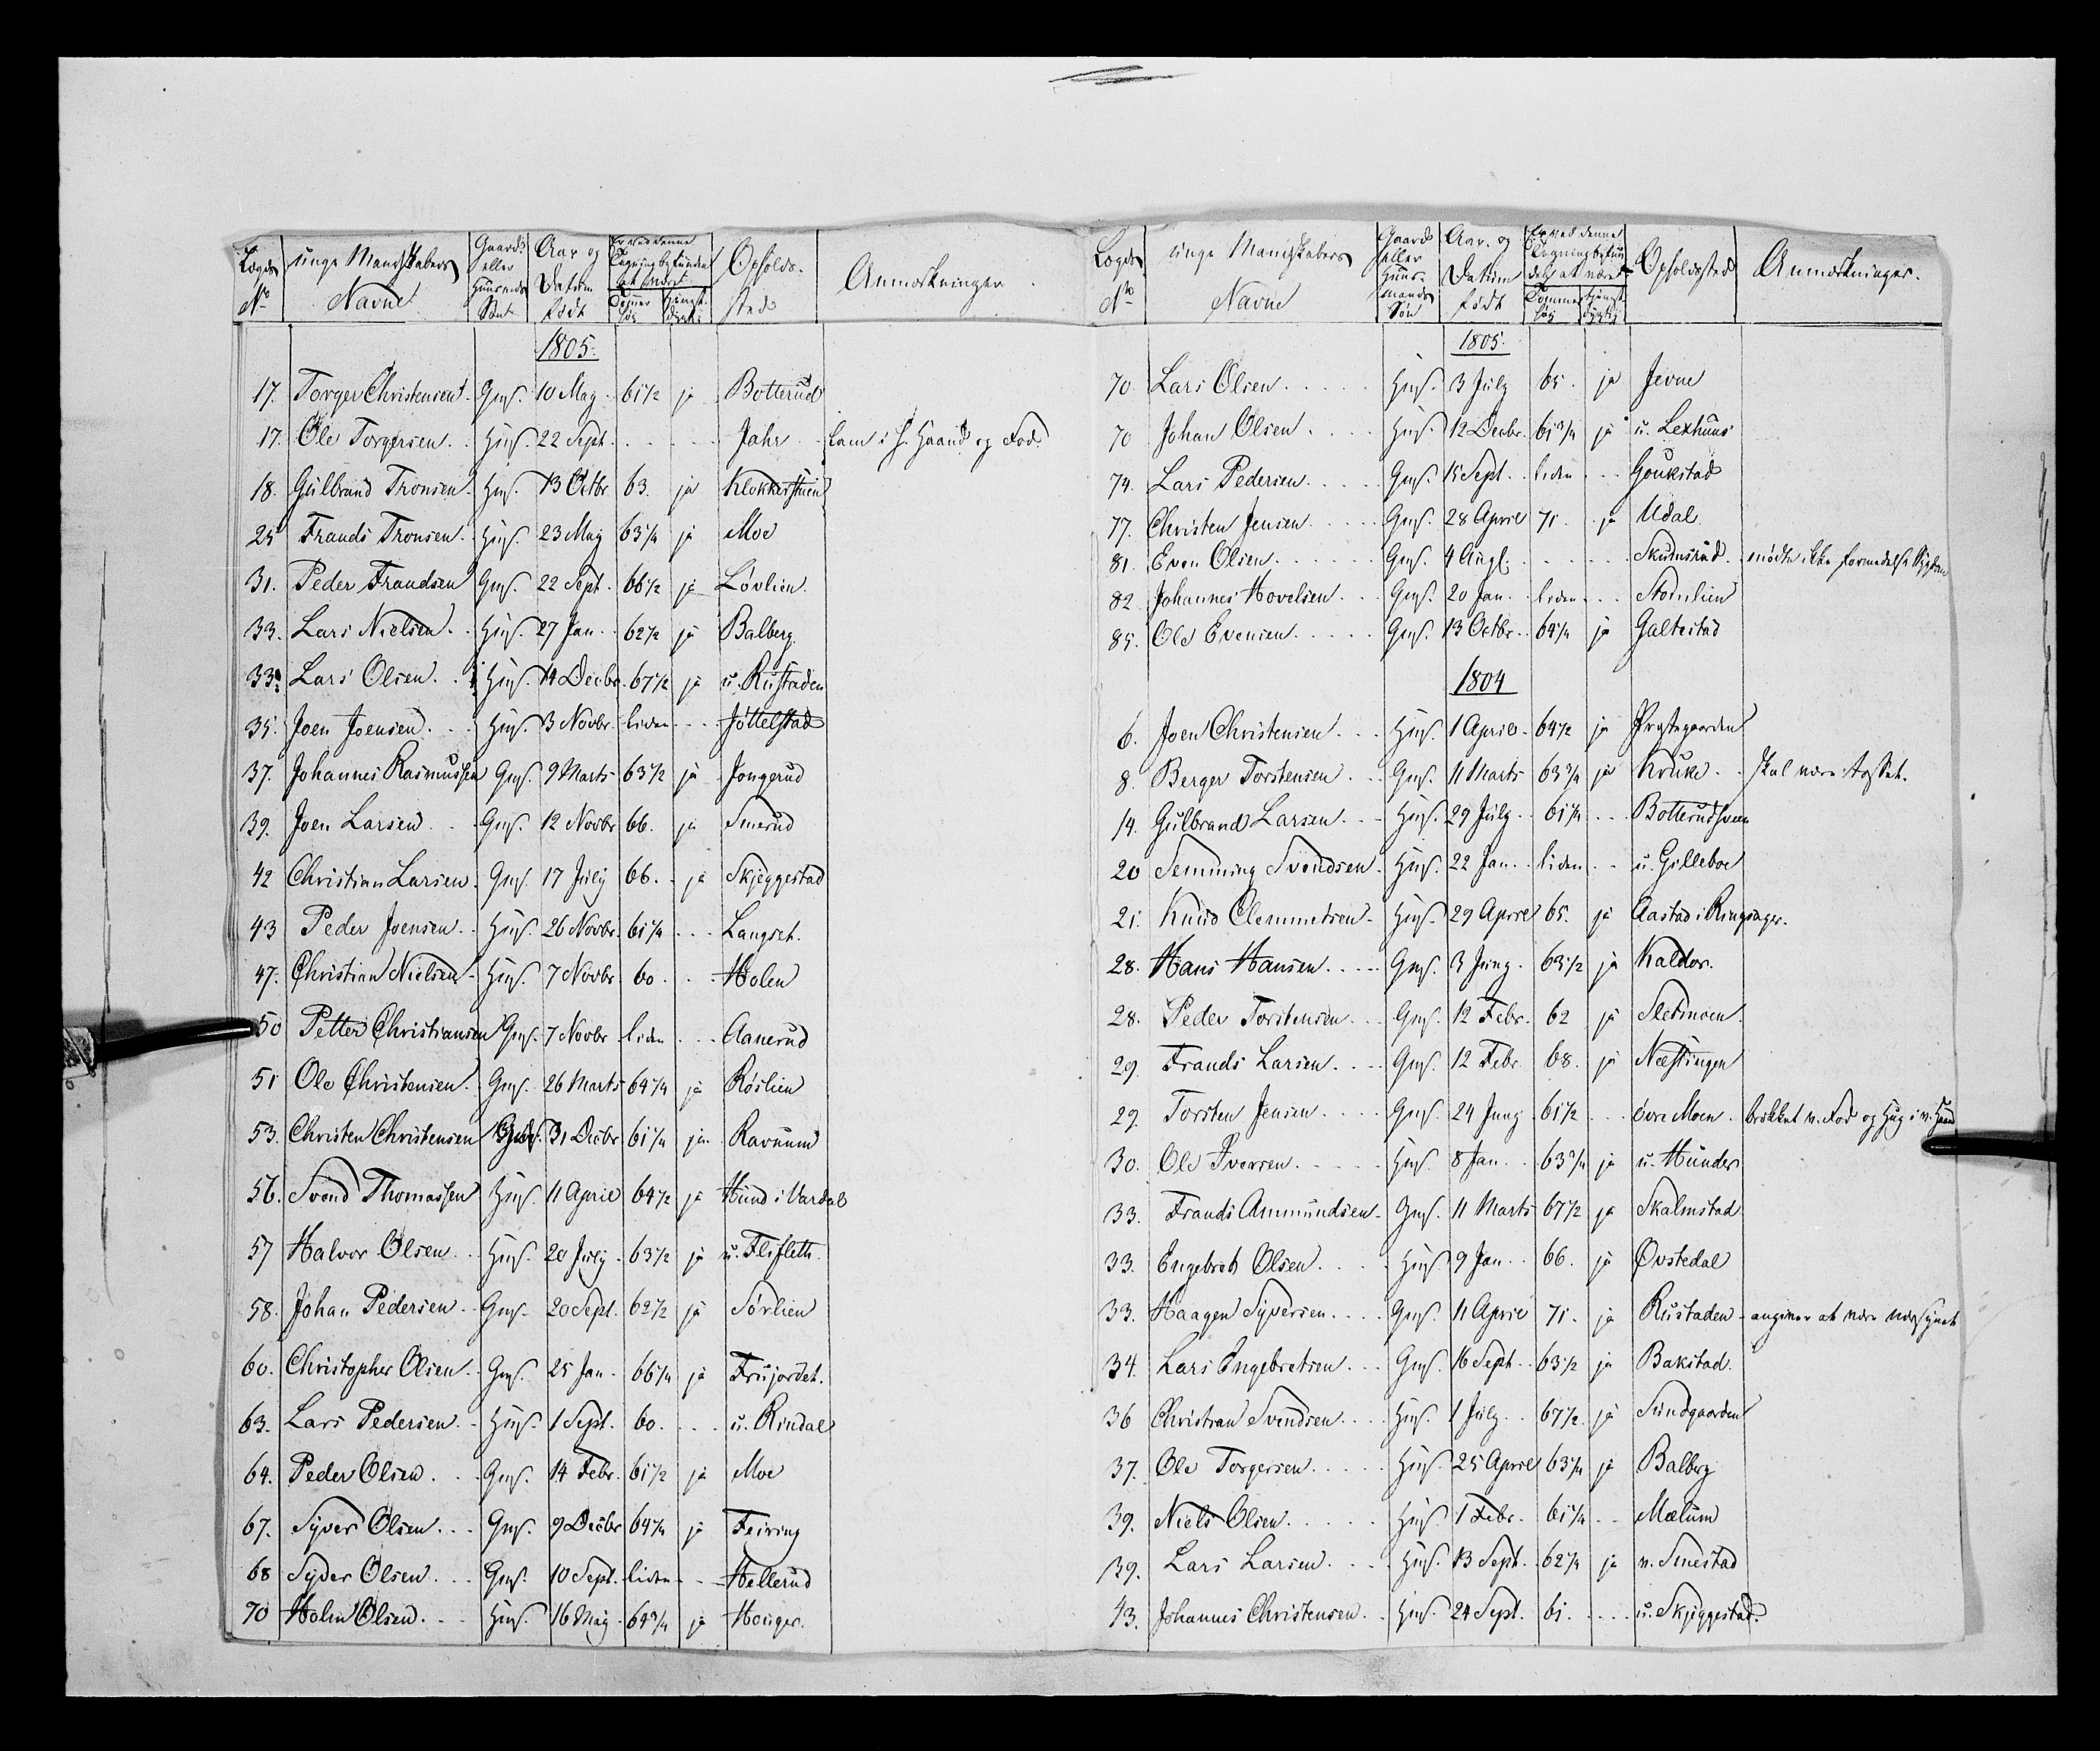 Lægds No | unge Mandskabers Navne | Gaards eller Huusmds Søn | Aar og Datum født | Er ved denne Tegning befunden at være Tommer høj | tjenst dygtig | Opholds-sted | Anmærkninger.
1805.
17. Torger Christensen. Gms. 10 May. 61 1/2 ja Botterud
17. Ole Torgersen. Hms. 22 Sept. Jahr Lam i h. Haand og Fod.
18. Gulbrand Tronsen. Hms. 13 Octbr. 63. ja Klokkerstuen
25 Frands Tronsen. Hms. 23 May 63 1/4 ja Moe
31. Peder Frandsen Gms. 22 Sept. 66 1/2 ja Lövlien.
33. Lars Nielsen. Hms. 27 Jan. 62 1/2 ja Balberg.
33. Lars Olsen. Hms. 14 Decbr. 67 1/2 ja u. Rustaden
35. Joen Joensen. Hms. 3 Novbr. liden Jöttelstad
37. Johannes Rasmussen Gms. 9 Marts 63 1/2 ja Jongerud
39. Joen Larsen. Gms. 12 Novbr 66. ja Smerud
42 Christian Larsen. Gms. 17 July 66. ja Skjeggestad
43 Peder Joensen. Hms. 26 Novbr. 61 1/4 Langset.
47. Christian Nielsen. Hms. 7 Novbr. 60. Holen
50 Petter Christiansen Gms. 7 Novbr liden Aanerud
51 Ole Christensen. Gms. 26 Marts 64 1/4 ja Röslien
53. Christen Christensen 31 Decbr 61 1/4 ja Ravnum
56. Svend Thomassen Hms. 11 April 64 1/2 ja Hund i Vardal
57 Halvor Olsen. Hms. 20 July 63 1/2 ja u. Flifleth.
58. Johan Pedersen. Gms. 20 Sept. 62 1/2 ja Sörlien
60. Christopher Olsen. Gms. 25 Jan. 66 1/4 ja Frujordet.
63. Lars Pedersen. Hms. 1 Sept. 60. u. Rindal
64. Peder Olsen. Gms. 14 Febr. 61 1/2 ja Moe
67. Syver Olsen. Gms. 9 Decbr 64 1/4 ja Feiring
68 Syver Olsen. Gms. 10 Sept. liden Hellerud
70 Holm Olsen. Hms. 16 May. 64 3/4 ja Honger.
Lægds No | unge Mandskabers Navne | Gaards eller Huus-mands Søn | Aar og Datum født | Er ved denne Tegning befunden at være Tommer høj | tjenst dygtig | Opholdssted | Anmærkninger.
1805.
70. Lars Olsen. Hms. 3 July 65. ja Jevne
70 Johan Olsen. Hms. 12 Decbr. 61 3/4 ja u. Lexhuus
74. Lars Pedersen. Gms. 15 Sept. liden Goukstad
77. Christen Jensen. Gms. 28 April 71. ja Udal
81. Even Olsen. Gms. 4 Augt. Skumsrud. mødte ikke formedelst Sygdom
82 Johannes Hovelsen. Gms. 20 Jan. liden Stornlien
85. Ole Evensen. Gms. 13 Octbr. 64 1/4 ja Galtestad
1804
6. Joen Christensen. Hms. 1 April. 64 1/2 ja Præstegaarden
8. Berger Torstensen. Gms. 11 Marts 63 3/4 ja Kruke. skal være tosset.
14. Gulbrand Larsen. Hms. 29 July 61 1/4 Botterudsveen
20 Semming Svendsen. Hms. 22 Jan. liden u. Gilleboe
21. Knud Clemmetsen. Hms. 29 April 65. ja Aastad i Ringsager.
28. Hans Hansen. Gms. 3 Juny. 63 1/2 ja Kaldor.
28. Peder Torstensen. Gms. 12 Febr. 62 ja Sletmoen.
29. Frands Larsen. Gms. 12 Febr. 68. ja Næstingen
29. Torsten Jensen. Gms. 24 Juny 61 1/2 övre Moen. brækket v. Fod og Hug i v. Haand
30. Ole Iversen. Hms. 8 Jan. 63 3/4 ja u. Hunder
33. Frands Ammundsen. Gms. 11 Marts 67 1/2 ja Skalmstad
33. Engebret Olsen. Hms. 9 Jan. 66. ja Øvstedal
33. Haagen Syversen. Gms. 11 April 71. ja Rustaden angiver at være nærsynet
34. Lars Engebretsen. Gms. 16 Sept. 63 1/2 ja Bakstad.
36 Christian Svendsen. Hms. 1 July. 67 1/2 ja Sundgaarden
37. Ole Torgersen. Hms. 25 April 63 1/4 ja Balberg
39. Niels Olsen. Hms. 1 Febr. 61 1/4 Mælum
39. Lars Larsen. Hms. 13 Sept. 62 1/4 ja n. Smestad
43. Johannes Christensen. Hms. 24 Sept. 61. u. Skjeggestad.